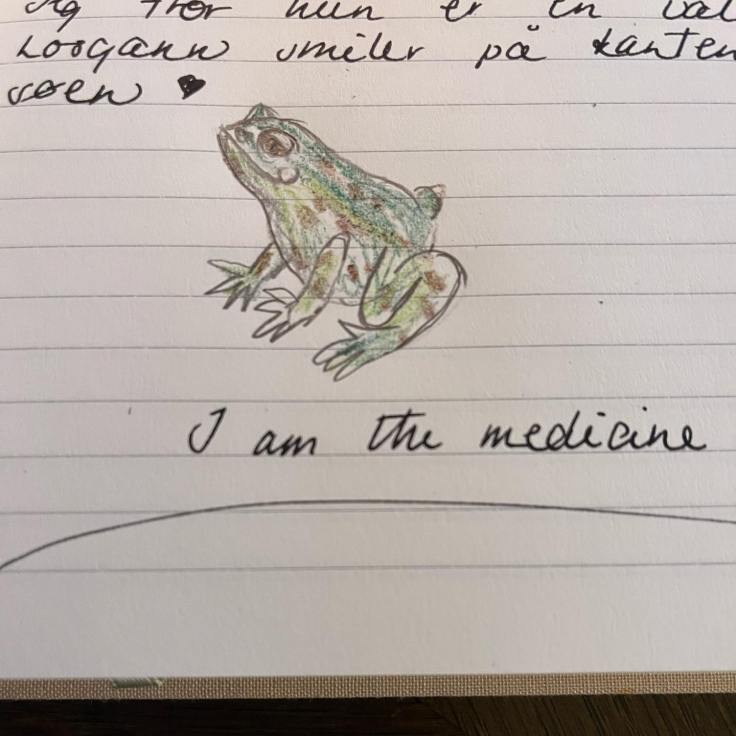 Jeg tror hun er en
Loogann smiler på kanten
søen
I am the medicine